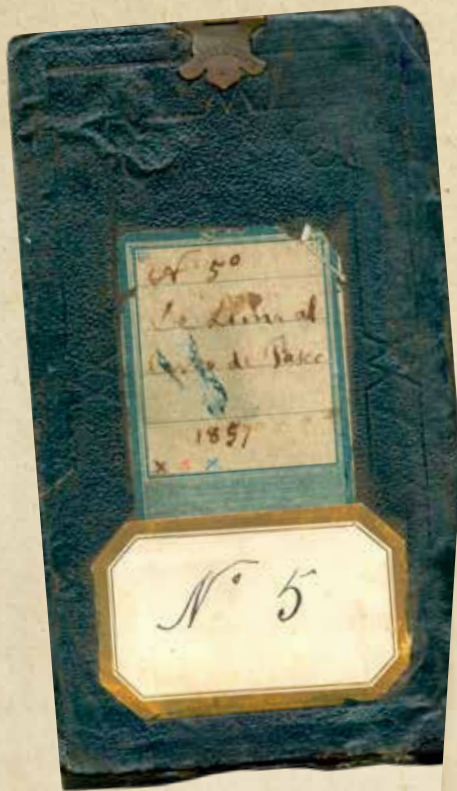 N° 5°
De Lima al
Cerro de Pasco
1857
x x x
N° 5